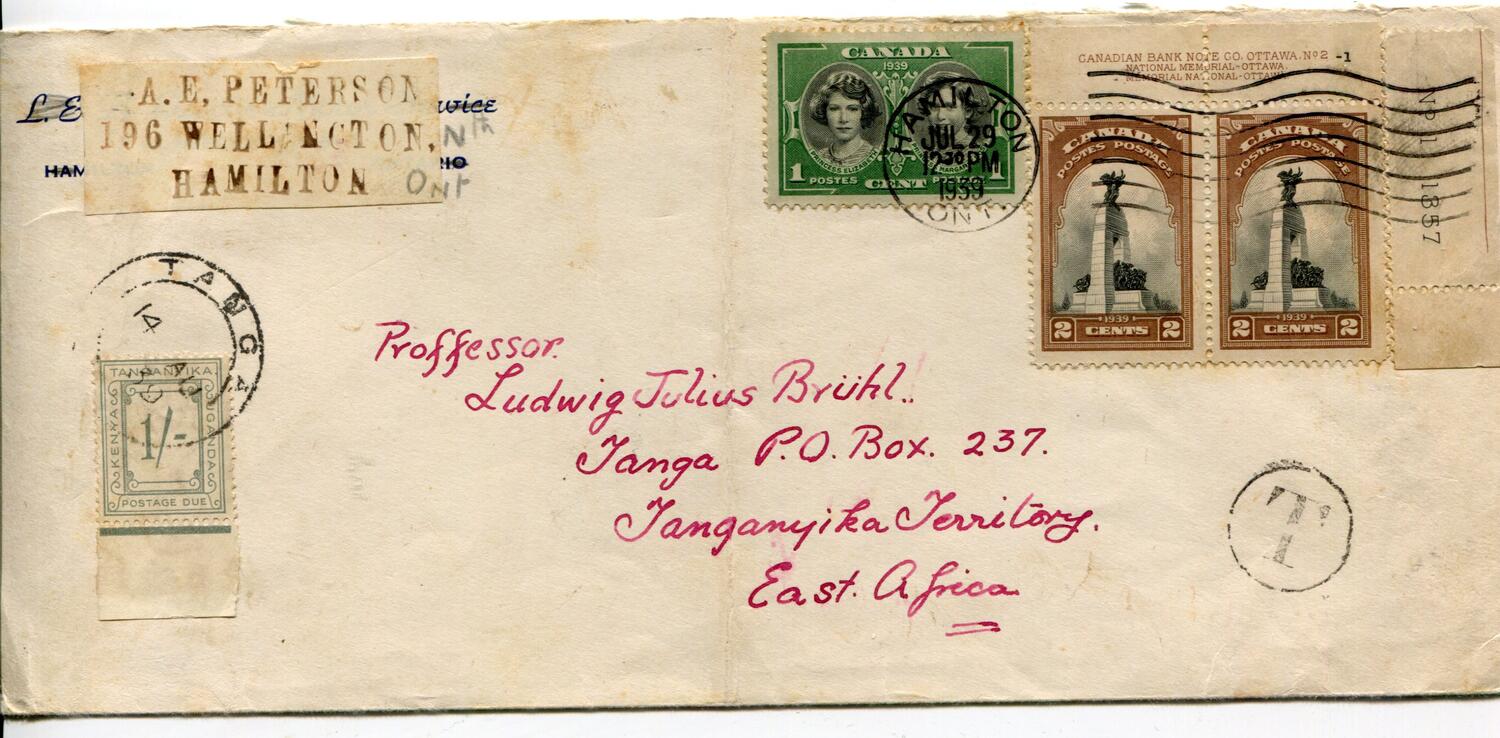 L. E
vice
HAM
RIO
A. E, PETERSON
196 WELLINGTON, Nth
HAMILTON Ont
CANADA
1939
1
PRINCESS ELIZABETH
MARGARET
1 POSTES CENT 1
HAMILTON
JUL 29
12 30 PM
1939
ONT
CANADIAN BANK NOTE CO. OTTAWA. No 2 -1
NATIONAL MEMORIAL-OTTAWA.
MEMORIAL NATIONAL-OTTAWA
CANADA
POSTES POSTAGE
1939
2 CENTS 2
CANADA
POSTES POSTAGE
1939
2 CENTS 2
1357
TANGA
14
AU
39
TANGANYIKA
KENYA
UGANDA
1/-
POSTAGE DUE
Proffessor.
Ludwig Julius Brühl.
Tanga P.O. Box. 237.
Tanganyika Territory.
East. Africa
T